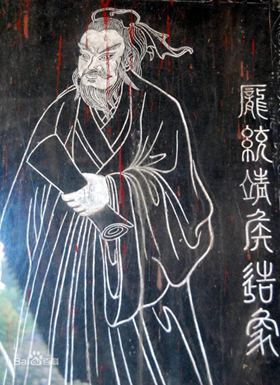 龐統靖侯造象
Bai百科